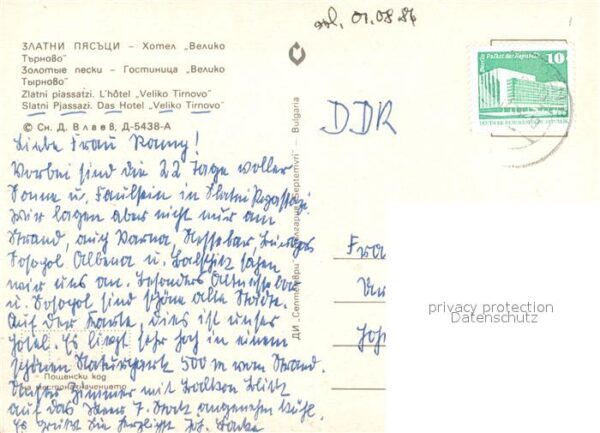 erh. 01.08.86
ЗЛАТНИ ПЯСЪЦИ – Хотел „Велико
Търново"
Золотые пески – Гостиница „Велико
Тырново"
Zlatni piassatzi. L'hôtel „Veliko Tirnovo"
Slatni Pjassazi. Das Hotel „Veliko Tirnovo"
© Сн. Д. Влаев, Д-5438-А
Palast der Republik
10
DDR
Liebe Frau
Vorbei sind die 22 Tage voller
Sonne u. Faulsein in Slatni Pjassazi
Wir lagen aber nicht nur am
Strand, auch Varna, Nessebar,
Sosopol Albena u. Baltschik sahen
wir uns an. Besonders
u. Sosopol sind schöne alte Städte.
Auf der Karte, dies ist unser
Hotel. Es liegt sehr hoch in einem
schönen Naturpark 500 m vom Strand.
Пощенски код
на местоназначението
Unser Zimmer mit Balkon Blick
auf das Meer 7. Stock angenehm kühl.
Es grüßt Sie herzlichst
ДИ „Септември" – България „Septemvri" – Bulgaria
Frau
privacy protection
Datenschutz